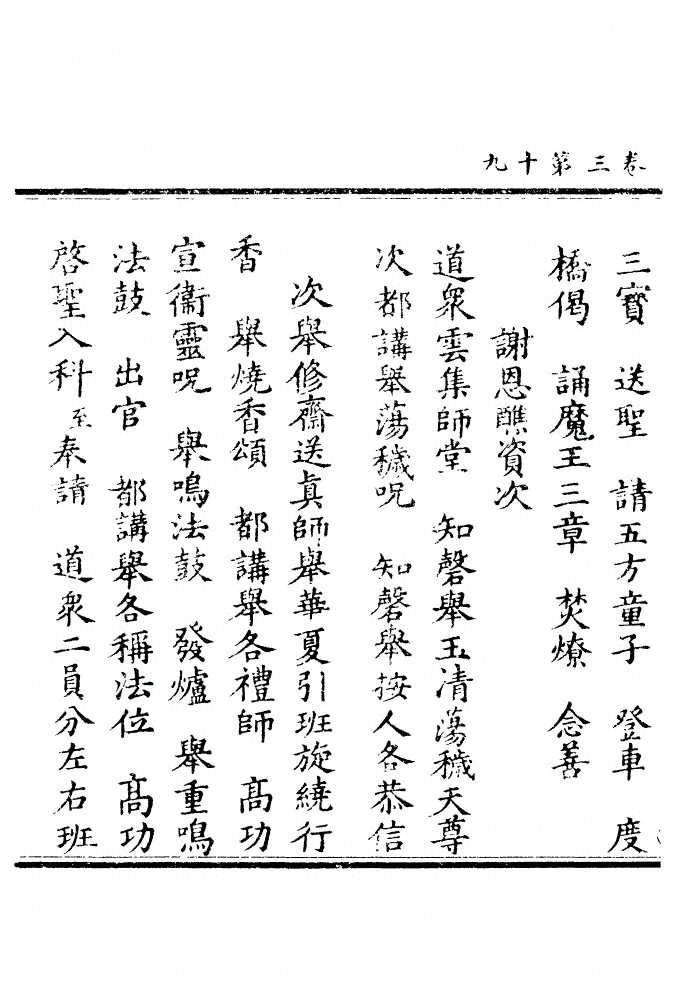 卷三第十九
三寳　送聖　請五方童子　登車　度
橋偈　誦魔王三章　焚燎　念善
謝恩醮資次
道衆雲集師堂　知磬舉玉清蕩穢天尊
次都講舉蕩穢呪　知磬舉按人各恭信
次舉修齋送眞師舉華夏引班旋繞行
香　舉燒香頌　都講舉各禮師　高功
宣衞靈呪　舉鳴法鼓　發爐　舉重鳴
法鼓　出官　都講舉各稱法位　高功
啓聖入科至奉請　道衆二員分左右班